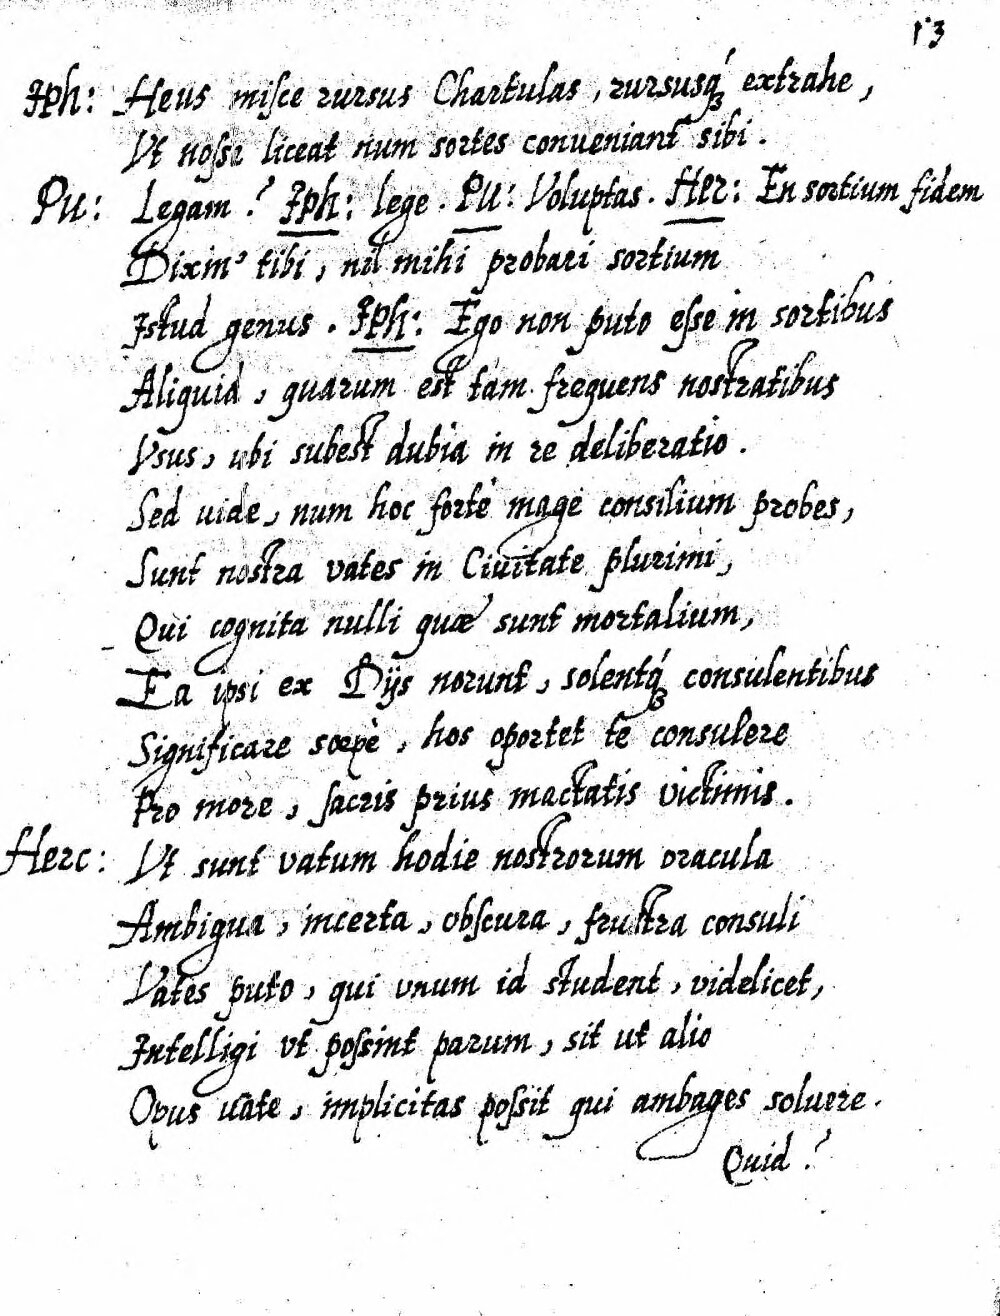 13
Iph: Heus misce rursus Chartulas, rursusq́ꝫ extrahe,
Vt nosse liceat num sortes conueniant sibi.
Pu: Legam? Iph: lege. Pu: Voluptas. Her: En sortium fidem
Dixim' tibi, nil mihi probari sortium
Istud genus. Iph: Ego non puto esse in sortibus
Aliquid, quarum est tam frequens nostratibus
Vsus, ubi subest dubia in re deliberatio.
Sed uide, num hoc fortè mage consilium probes,
Sunt nostra vates in Ciuitate plurimi,
Qui cognita nulli quæ sunt mortalium,
Ea ipsi ex Dijs norunt, solentq́ꝫ consulentibus
Significare sæpè, hos oportet te consulere
Pro more, sacris prius mactatis victimis.
Herc: Vt sunt vatum hodie nostrorum oracula
Ambigua, incerta, obscura, frustra consuli
Vates puto, qui vnum id student, videlicet,
Intelligi vt possint parum, sit ut alio
Opus uate, implicitas possit qui ambages soluere.
Quid?